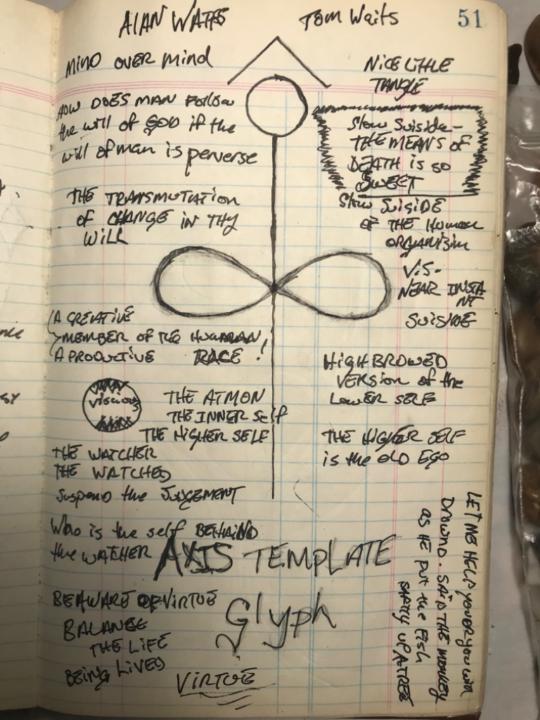 ALAN WATTS
Tom Waits
51
MIND OVER MIND
NICE LITTLE
TANGLE
HOW DOES MAN Follow
the will of GOD if the
will of man is perverse
Slow Suiside-
THE MEANS of
DEATH is so
SWEET
THE TRANSMUTATION
OF CHANGE IN THY
WILL
Slow SUISIDE
of THE Human
ORGANISIM
VIS-
NEAR INSTA
NT
SUISIDE
A CREATIVE
MEMBER OF THE HUMAN
A PRODUCTIVE RACE!
HIGH BROWED
VERSION of the
LOWER SELF
VICIOUS
THE ATMON
THE INNER SElf
THE HIGHER SELF
THE HIGHER SELF
is the OLD EGO
THE WATCHER
THE WATCHED
Suspend the JUDGEMENT
Who is the self BEHAIND
the WATCHER
AXIS TEMPLATE
Glyph
BE AWARE OF VIRTUE
BALANSE
THE LIFE
BEING LIVED
VIRTUE
LET ME HELP YOU OR YOU WILL
DROWND. SAID THE MONKEY
as HE PUT the FISH
SAFTLY UP A TREE